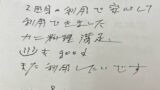 2回目の利用で安心して
利用できました
カニ料理 満足。
も good
また利用したいです